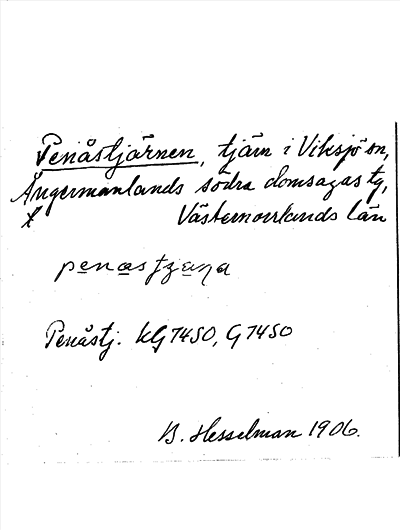 Penåstjärnen, tjärn i Viksjö sn,
Ångermanlands södra domsagas tg,
Västernorrlands län
Penåstj. KG 7450, G 7450
B. Hesselman 1906.